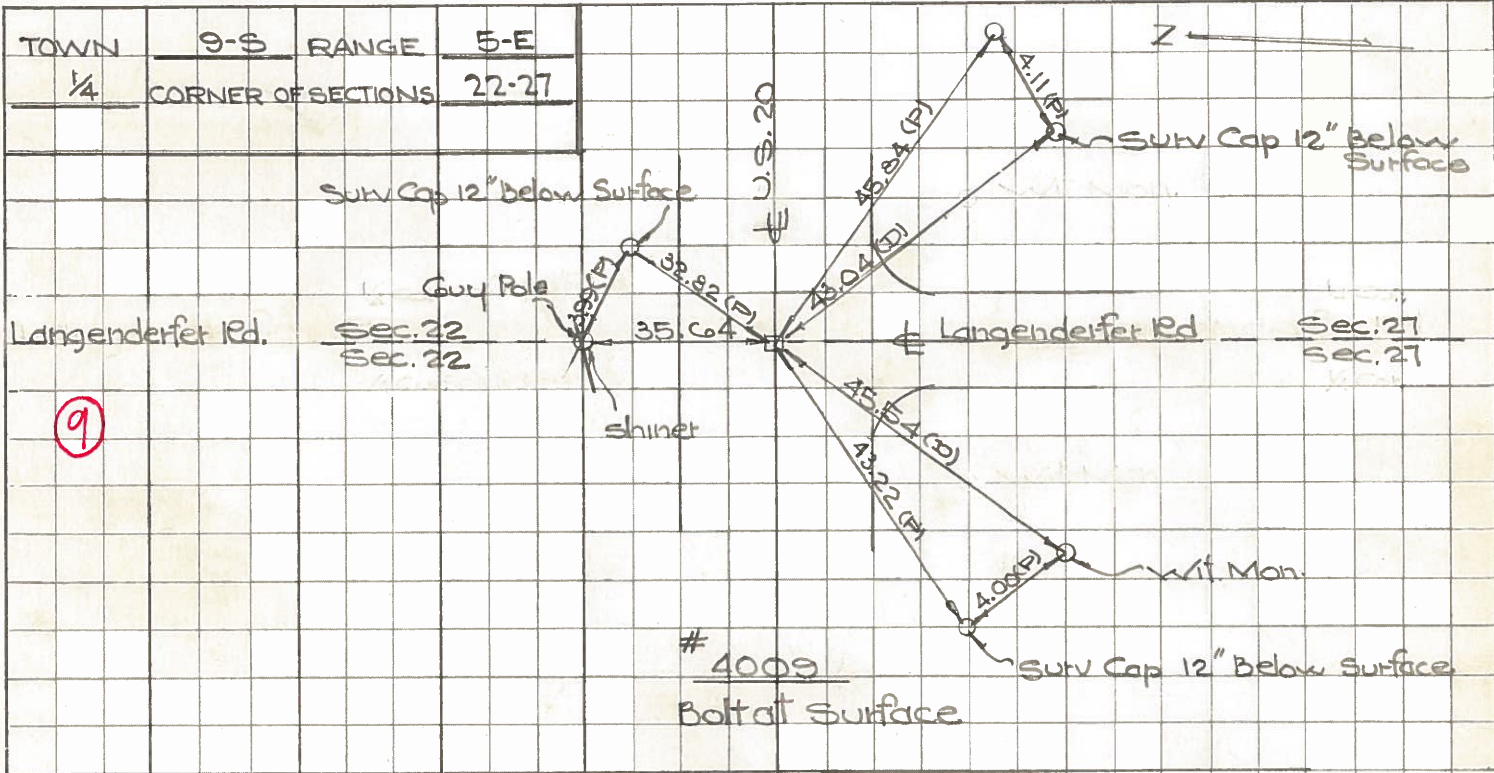 TOWN 9-S RANGE 5-E
1/4 CORNER OF SECTIONS 22-27
Z
℄ U.S. 20
45.84 (P)
4.11 (P)
Surv Cap 12" Below
Surface
Surv Cap 12" Below Surface
43.04 (D)
Guy Pole
32.82 (P)
Langenderfer Rd.
Sec. 22
Sec. 22
35.64
℄ Langenderfer Rd
Sec. 27
Sec. 27
9
shiner
45.54 (D)
43.22 (P)
4.00 (P)
Wit. Mon.
Surv Cap 12" Below Surface
# 4009
Bolt at Surface